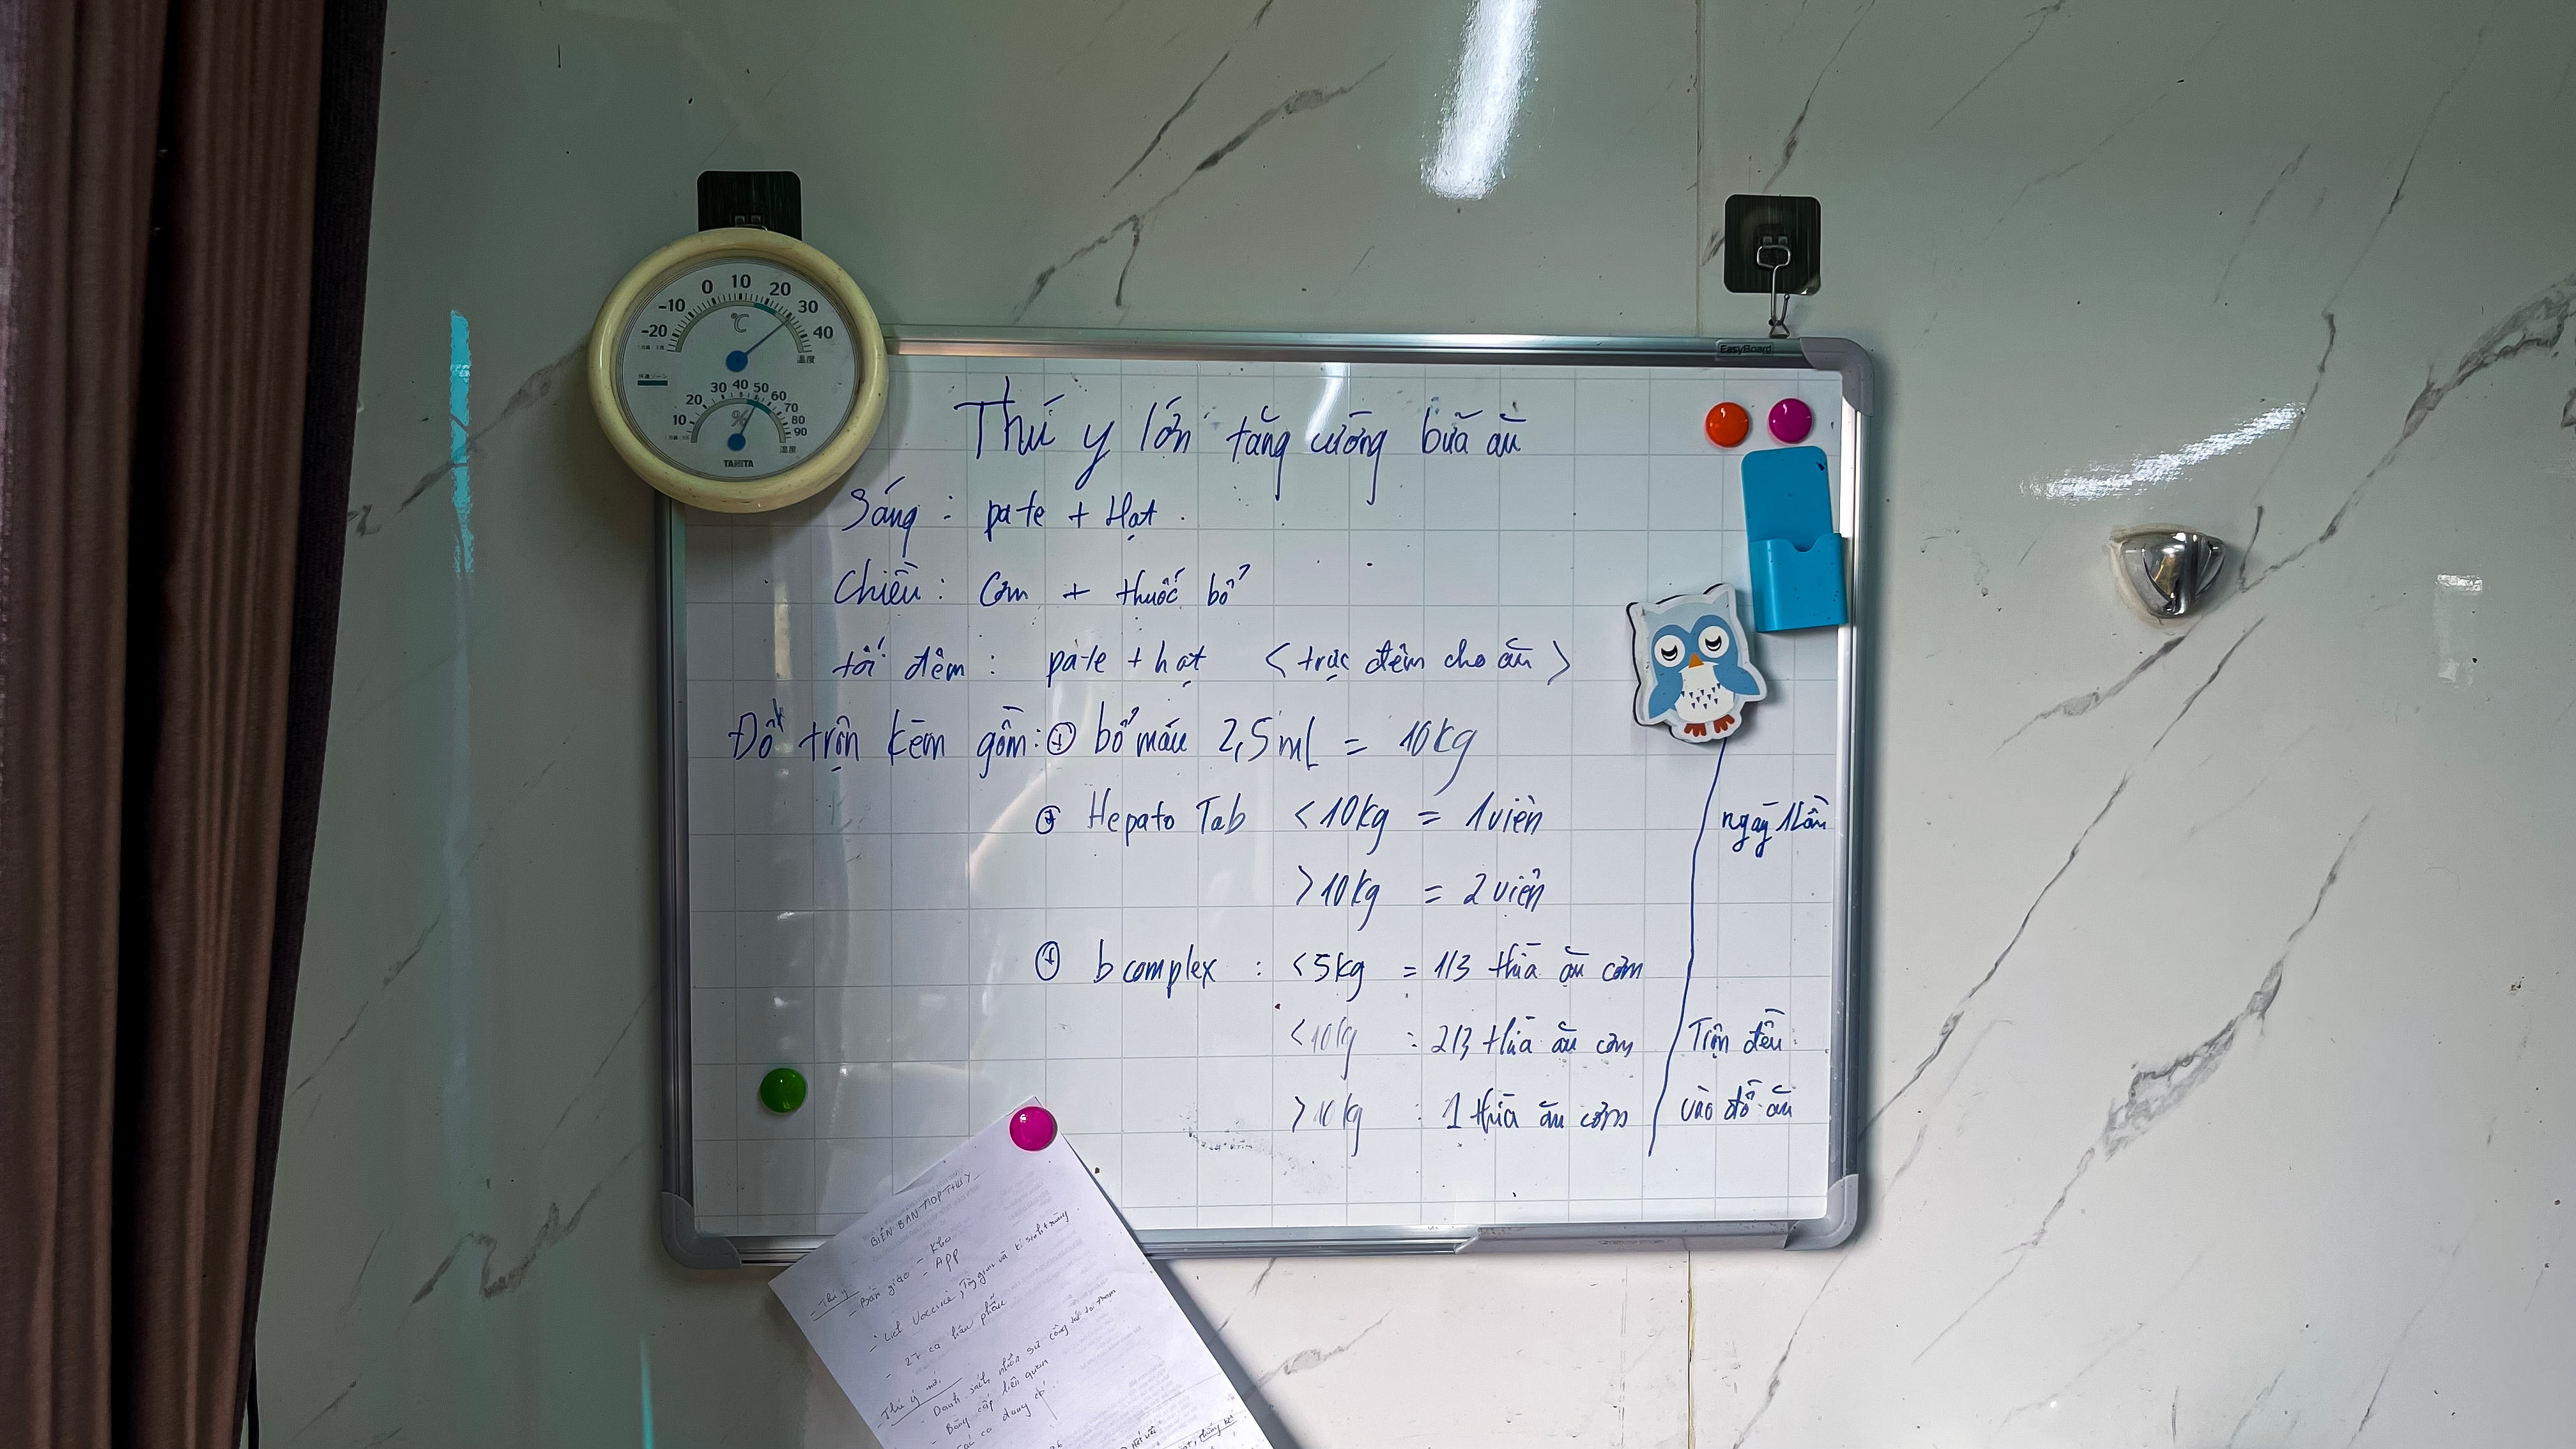 -20 -10 0 10 20 30 40
℃
温度
10 20 30 40 50 60 70 80 90
%
TANITA
EasyBoard
Thú y lớn tăng cường bữa ăn
Sáng : pate + Hạt
Chiều : Cơm + thuốc bổ
tối đêm : pate + hạt < trực đêm cho ăn >
Đồ trộn kèm gồm: + bổ máu 2,5ml = 10kg
+ Hepato Tab < 10kg = 1 viên
ngày 1 lần
> 10kg = 2 viên
+ b complex : < 5kg = 1/3 thìa ăn cơm
< 10kg : 2/3 thìa ăn cơm
Trộn đều
> 10kg : 1 thìa ăn cơm
vào đồ ăn
BIÊN BẢN HỌP THÚ Y
- Thú y
- Bàn giao - Kho
- APP
- Lịch Vaccine, Tẩy giun và kí sinh trùng
- 27 ca hậu phẫu
- Danh sách nhân sự
- Bằng cấp liên quan